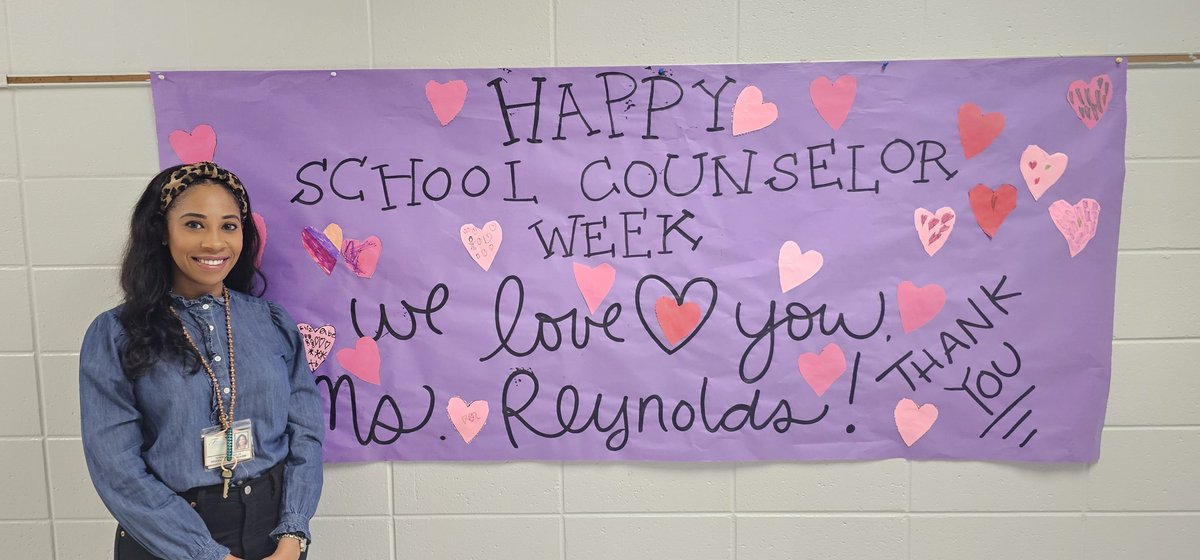 HAPPY
SCHOOL COUNSELOR
WEEK
we love you,
Ms. Reynolds!
THANK
YOU